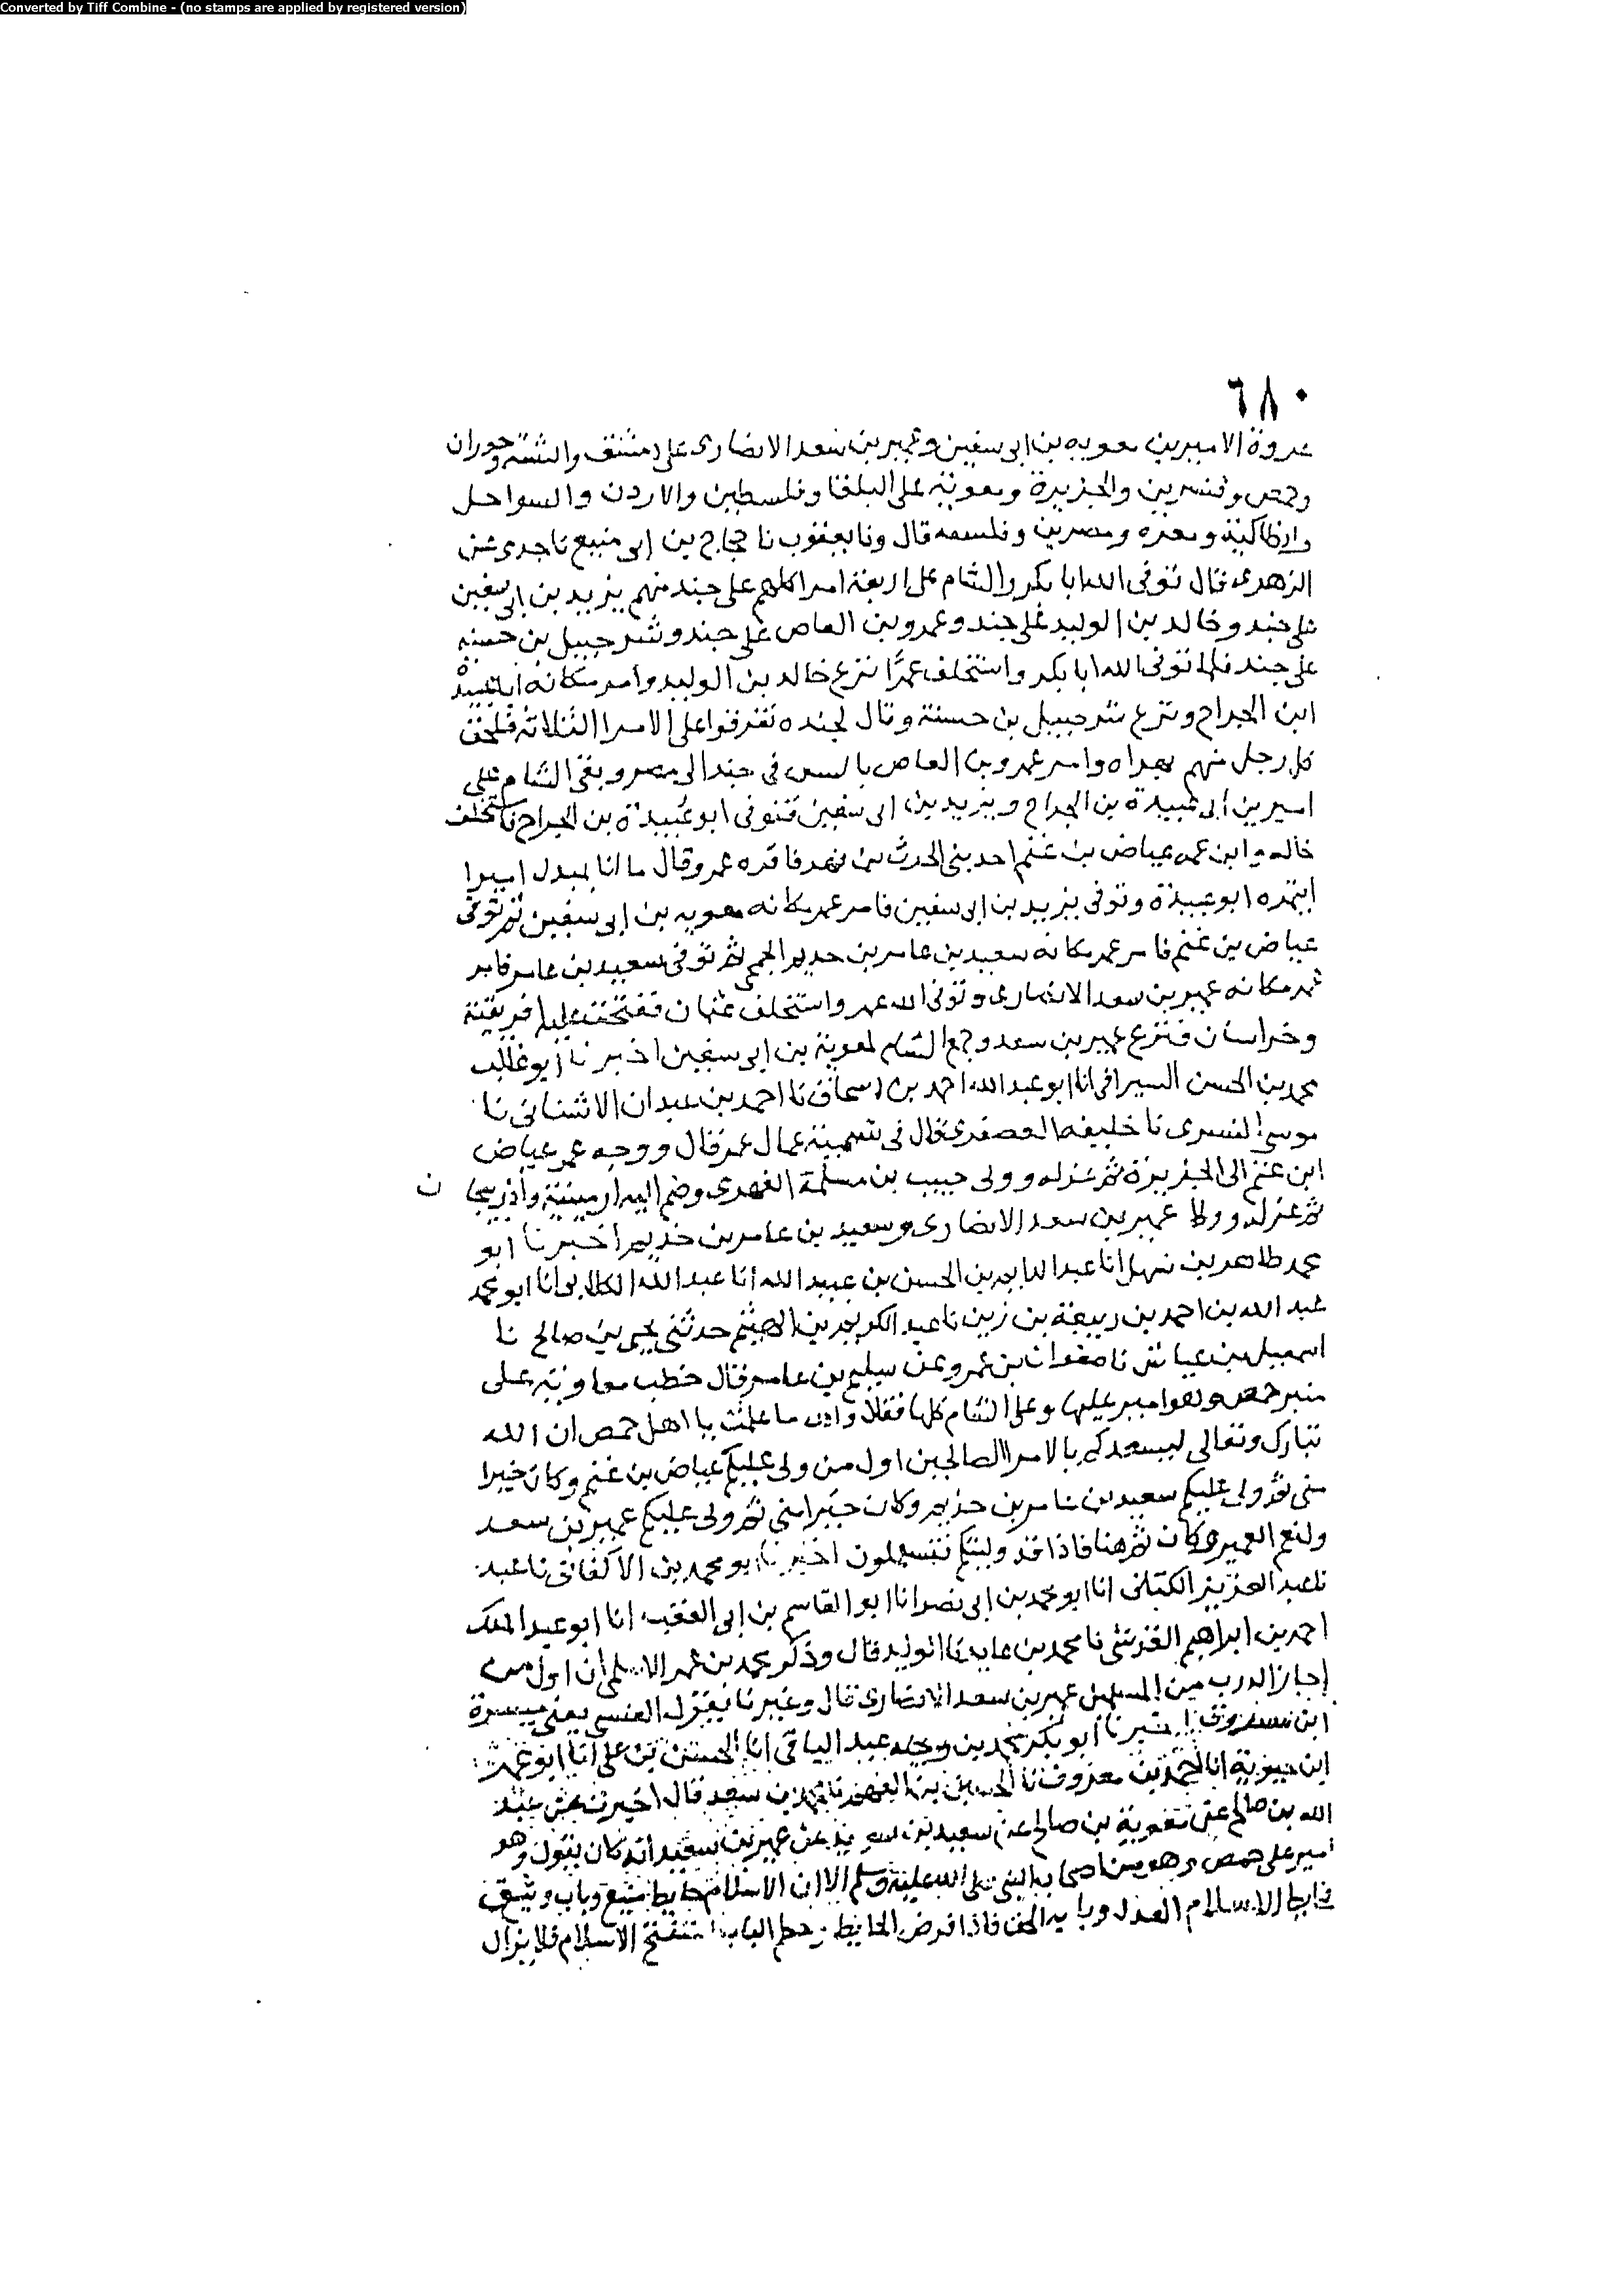 Converted by Tiff Combine - (no stamps are applied by registered version)
٦٨٠
عروة الاميرين معويه بن ابى سفين وعمير بن سعد الانصارى على دمشق والبثنة وحوران
وحمص وقنسرين والجزيرة ومعوية على البلقا وفلسطين والاردن والسواحل
وانطاكية ومعرة ومصرين وقال ونا يعقوب نا حجاج بن ابى منيع نا جدى عن
الزهرى قال توفى الله ابا بكر والشام على اربعة امرا كلهم على جند منهم يزيد بن ابى سفين
على جند وخالد بن الوليد على جند وعمرو بن العاص على جند وشرحبيل بن حسنه
على جند فلما توفى الله ابا بكر واستخلف عمر نزع خالد بن الوليد وامر مكانه ابا عبيدة
ابن الجراح ونزع شرحبيل بن حسنة وقال لجنده تفرقوا على الامرا الثلاثة فلحق
كل رجل منهم وامر عمرو بن العاص بالسير فى جند الى مصر وبقى الشام على
اميرين ابى عبيدة بن الجراح ويزيد بن ابى سفين فتوفى ابو عبيدة بن الجراح فاستخلف
خاله وابن عمه عياض بن غنم احد بنى الحرث بن فهر فاقره عمر وقال ما انا بمبدل اميرا
ابو عبيدة وتوفى يزيد بن ابى سفين فامر عمر مكانه معويه بن ابى سفين ثم توفى
عياض بن غنم فامر عمر مكانه سعيد بن عامر بن حديم الجمحى ثم توفى سعيد بن عامر فامر
عمر مكانه عمير بن سعد الانصارى وتوفى الله عمر واستخلف عثمان ففتحت عليه افريقية
وخراسان فنزع عمير بن سعد وجمع الشام لمعوية بن ابى سفين اخبرنا ابو غالب
محمد بن الحسن السيرافى انا ابو عبد الله احمد بن اسحاق نا احمد بن عبدان الاشنانى نا
موسى التسترى نا خليفه العصفرى قال فى تسمية عمال عمر قال ووجه عمر عياض
ابن غنم الى الجزيرة ثم عزله وولى حبيب بن مسلمة الفهرى وضم اليه ارمينية واذربيجان
ثم عزله وولا عمير بن سعد الانصارى وسعيد بن عامر بن خذيم اخبرنا ابو
محمد طاهر بن سهل انا عبد الدايم بن الحسن بن عبيد الله انا عبد الله الكلابى انا ابو محمد
عبد الله بن احمد بن ربيعة بن زبن نا عبد الكريم بن الهيثم حدثنى يحيى بن صالح نا
اسمعيل بن عياش نا صفوان بن عمرو عن سليم بن عامر قال خطب معاوية على
منبر حمص وهو امير عليها وعلى الشام كلها فقال والله ما علمت يا اهل حمص ان الله
تبارك وتعالى ليسعدكم بالامرا الصالحين اول من ولى عليكم عياض بن غنم وكان خيرا
منى ثم ولى عليكم سعيد بن عامر بن حذيم وكان خيرا منى ثم ولى عليكم عمير بن سعد
ولنعم العمير كان ثم هنا فاذا قد وليتكم فستعلمون اخبرنا ابو محمد بن الاكفانى نا عبد
نا عبد العزيز الكتانى انا ابو محمد بن ابى نصر انا ابو القاسم بن ابى العقب انا ابو عبد الملك
احمد بن ابراهيم القرشى نا محمد بن عايد نا الوليد قال وذكر محمد بن عمر الاسلمى ان اول من
اجاز الدرب من المسلمين عمير بن سعد الانصارى قال وغيرنا يقول العنسى يعنى ميسرة
ابن مسروق اخبرنا ابو بكر محمد بن عبد الباقى انا الحسن بن على انا ابو عمر
ابن حيوية انا احمد بن معروف نا الحسين بن الفهم نا محمد بن سعد قال اخبرت عن عبد
الله بن صالح عن معوية بن صالح عن سعيد بن سويد عن عمير بن سعيد انه كان يقول وهو
امير على حمص وهو من اصحاب النبى صلى الله عليه وسلم الا ان الاسلام حايط منيع وباب وثيق
فحايط الاسلام العدل وبابه الحق فاذا قوض الحايط وحطم الباب استفتح الاسلام فلا يزال